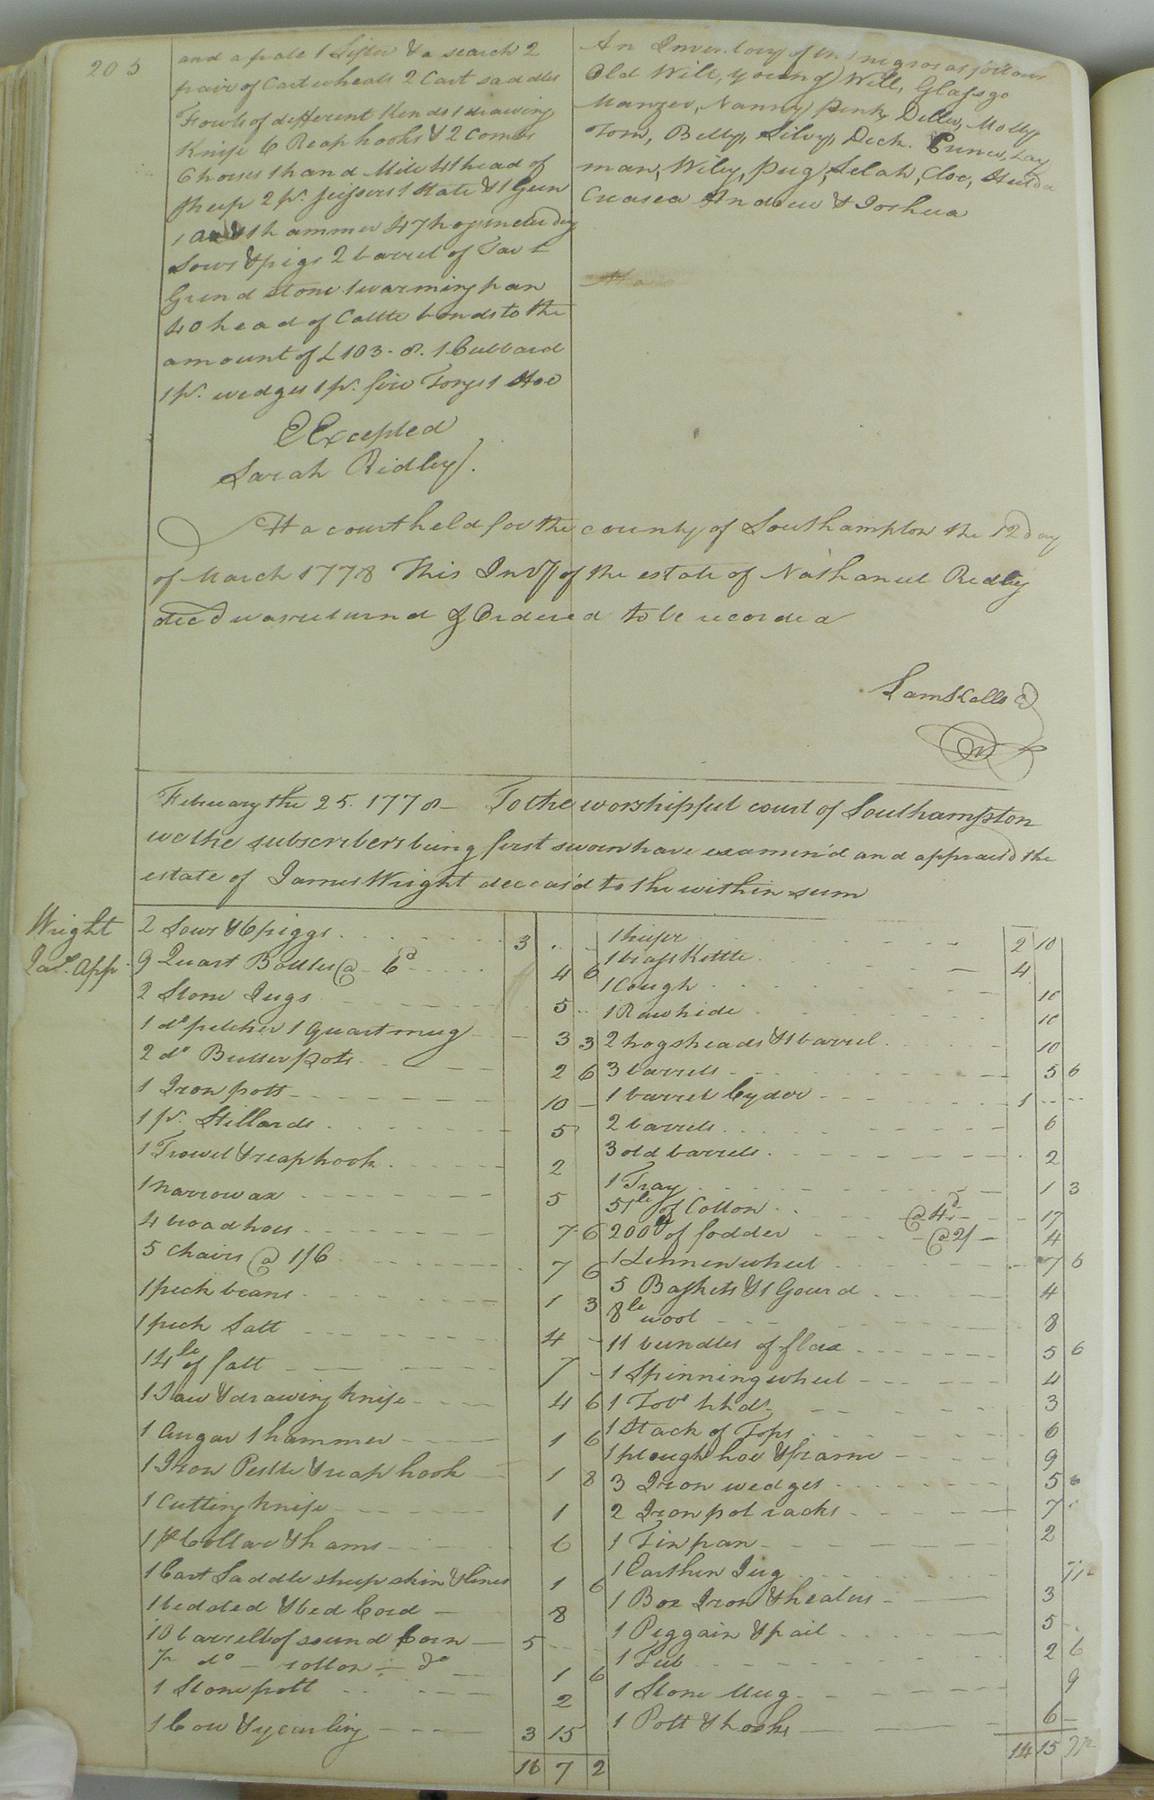 205
and a pale 1 Sifter & a search 2
pair of Cart wheals 2 Cart saddles
Fowls of different kinds 1 drawing
Knife 6 Reaphooks & 2 Comes
6 horses 1 hand Mile 41 head of
sheep 2 pr. 1 State & 1 Gun
1 hammer 47 hogs including
Sows & pigs 2 barrel of Tar 1
Grind stone 1 warming pan
40 head of Cattle bonds to the
amount of £103-8. 1 Cubbard
1 pr. wedges 1 pr. fire Tongs 1 Hoe
E Excepted
Sarah Ridley.
An Inventory of the negros as follows
Old Will, young Will, Glasgo
Manger, Nanny, Penny, Molly
Tom, Betty, Silvy, Dick.
man, Wiley, Pug, Selah, Cloe,
Andrew & Joshua
At a court held for the county of Southampton the 12 day
of March 1778 This Invy of the estate of Nathaniel Ridley
decd was returnd & Ordered to be recorded
Sam Kello
February the 25. 1778 To the worshipful court of Southampton
we the subscribers being first sworn have examin'd and apprais'd the
estate of James Wright deceas'd to the within sum
Wright
Jas. App.
2 Sows & 6 piggs 3 .. –
9 Quart Bottles @ 6d 4 6
2 Stone Jugs 5 ..
1 do pitcher 1 Quart mug 3 3
2 do Butter pots 2 6
1 Iron pott 10 –
1 pr. Stillards 5
1 Trowel & reaphook 2
1 narrow ax 5
4 broad hoes 7 6
5 Chairs @ 1/6 7 6
1 peck beans 1 3
1 peck Salt 4 –
14 lb of fatt 7 –
1 Saw & drawing knife 4 6
1 Augar 1 hammer 1 6
1 Iron Pestle & reap hook 1 8
1 Cutting knife 1
1 Collar & hams 6
1 Cart Saddle sheep skin & lines 1 6
1 bedsted & bed Cord 8
10 barrells of sound Corn 5
do – rotton – do 1 6
1 Stone pott 2
1 Cow & yearling 3 15
16 7 2
1 heifer 2 10
1 brass Kettle 4
1 Cough 10
1 Rawhide 10
2 hogsheads & 1 barrel 10
3 barrels 5 6
1 barrel Cyder 1 .. ..
2 barrels 6
3 old barrels 2
1 Tray 1 3
51 lb of Cotton @ 4d 17
200 of fodder @ 2/ 4
1 Linnen wheel 7 6
5 Baskets & 1 Gourd 4
8 lb wool 8
11 bundles of flax 5 6
1 Spinning wheel 4
1 Tobo hhd 3
1 Stack of Tops 6
1 plough hoe & frame 9
3 Iron wedges 5 6
2 Iron pot racks 7
1 Tin pan 2
1 Earthen Jug 7½
1 Box Iron & heaters 3
1 Peggain & pail 5
1 Tub 2 6
1 Stone Mug 9
1 Pott & hooks 6 –
14 15 7½